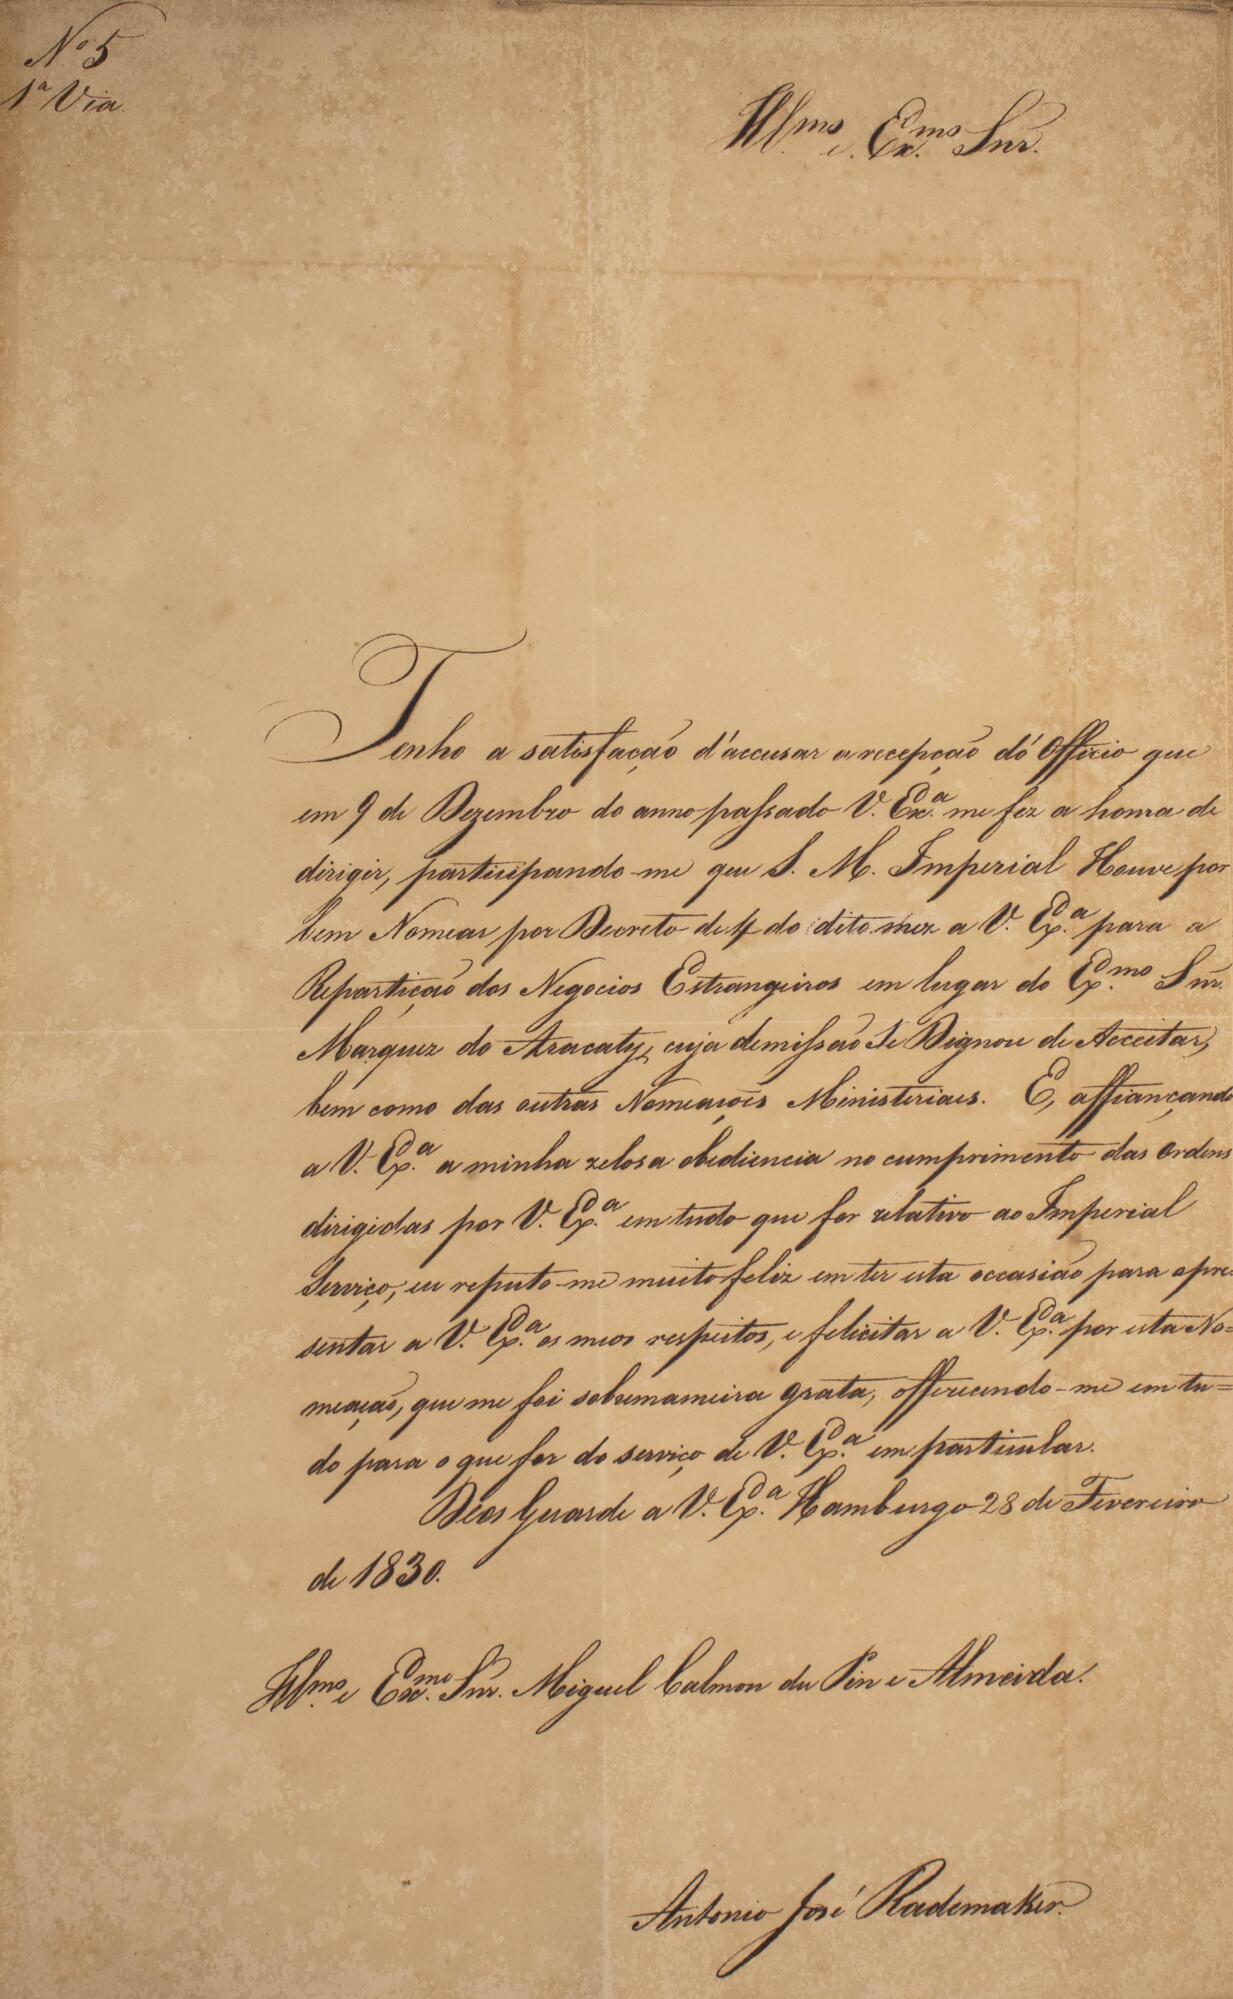 Nº 5
1ª Via.
Illmo. e. Exmo. Snr.
Tenho a satisfação d'accusar a recepção do Officio que
em 9 de Dezembro do anno passado V. Exª. me fez a honra de
dirigir, participando-me que S. M. Imperial Houve por
bem Nomear por Decreto de 4 do dito mez a V. Exª. para a
Repartição dos Negocios Estrangeiros em lugar do Exmo. Snr.
Marquez do Aracaty, cuja demissão Se Dignou de Acceitar,
bem como das outras Nomeaçoẽs Ministeriaes. E, affiançando
a V. Exª. a minha zelosa obediencia no cumprimento das Ordens
dirigidas por V. Exª. em tudo que for relativo ao Imperial
Serviço, eu reputo-me muito feliz em ter esta occasião para apre-
sentar a V. Exª. os meos respeitos, e felicitar a V. Exª. por esta No=
meação, que me foi sobremaneira grata, offerecendo-me em tu=
do para o que for do serviço de V. Exª. em particular.
Deos Guarde a V. Exª. Hamburgo 28 de Fevereiro
de 1830.
Illmo. e Exmo. Snr. Miguel Calmon du Pin e Almeida.
Antonio José Rademaker.